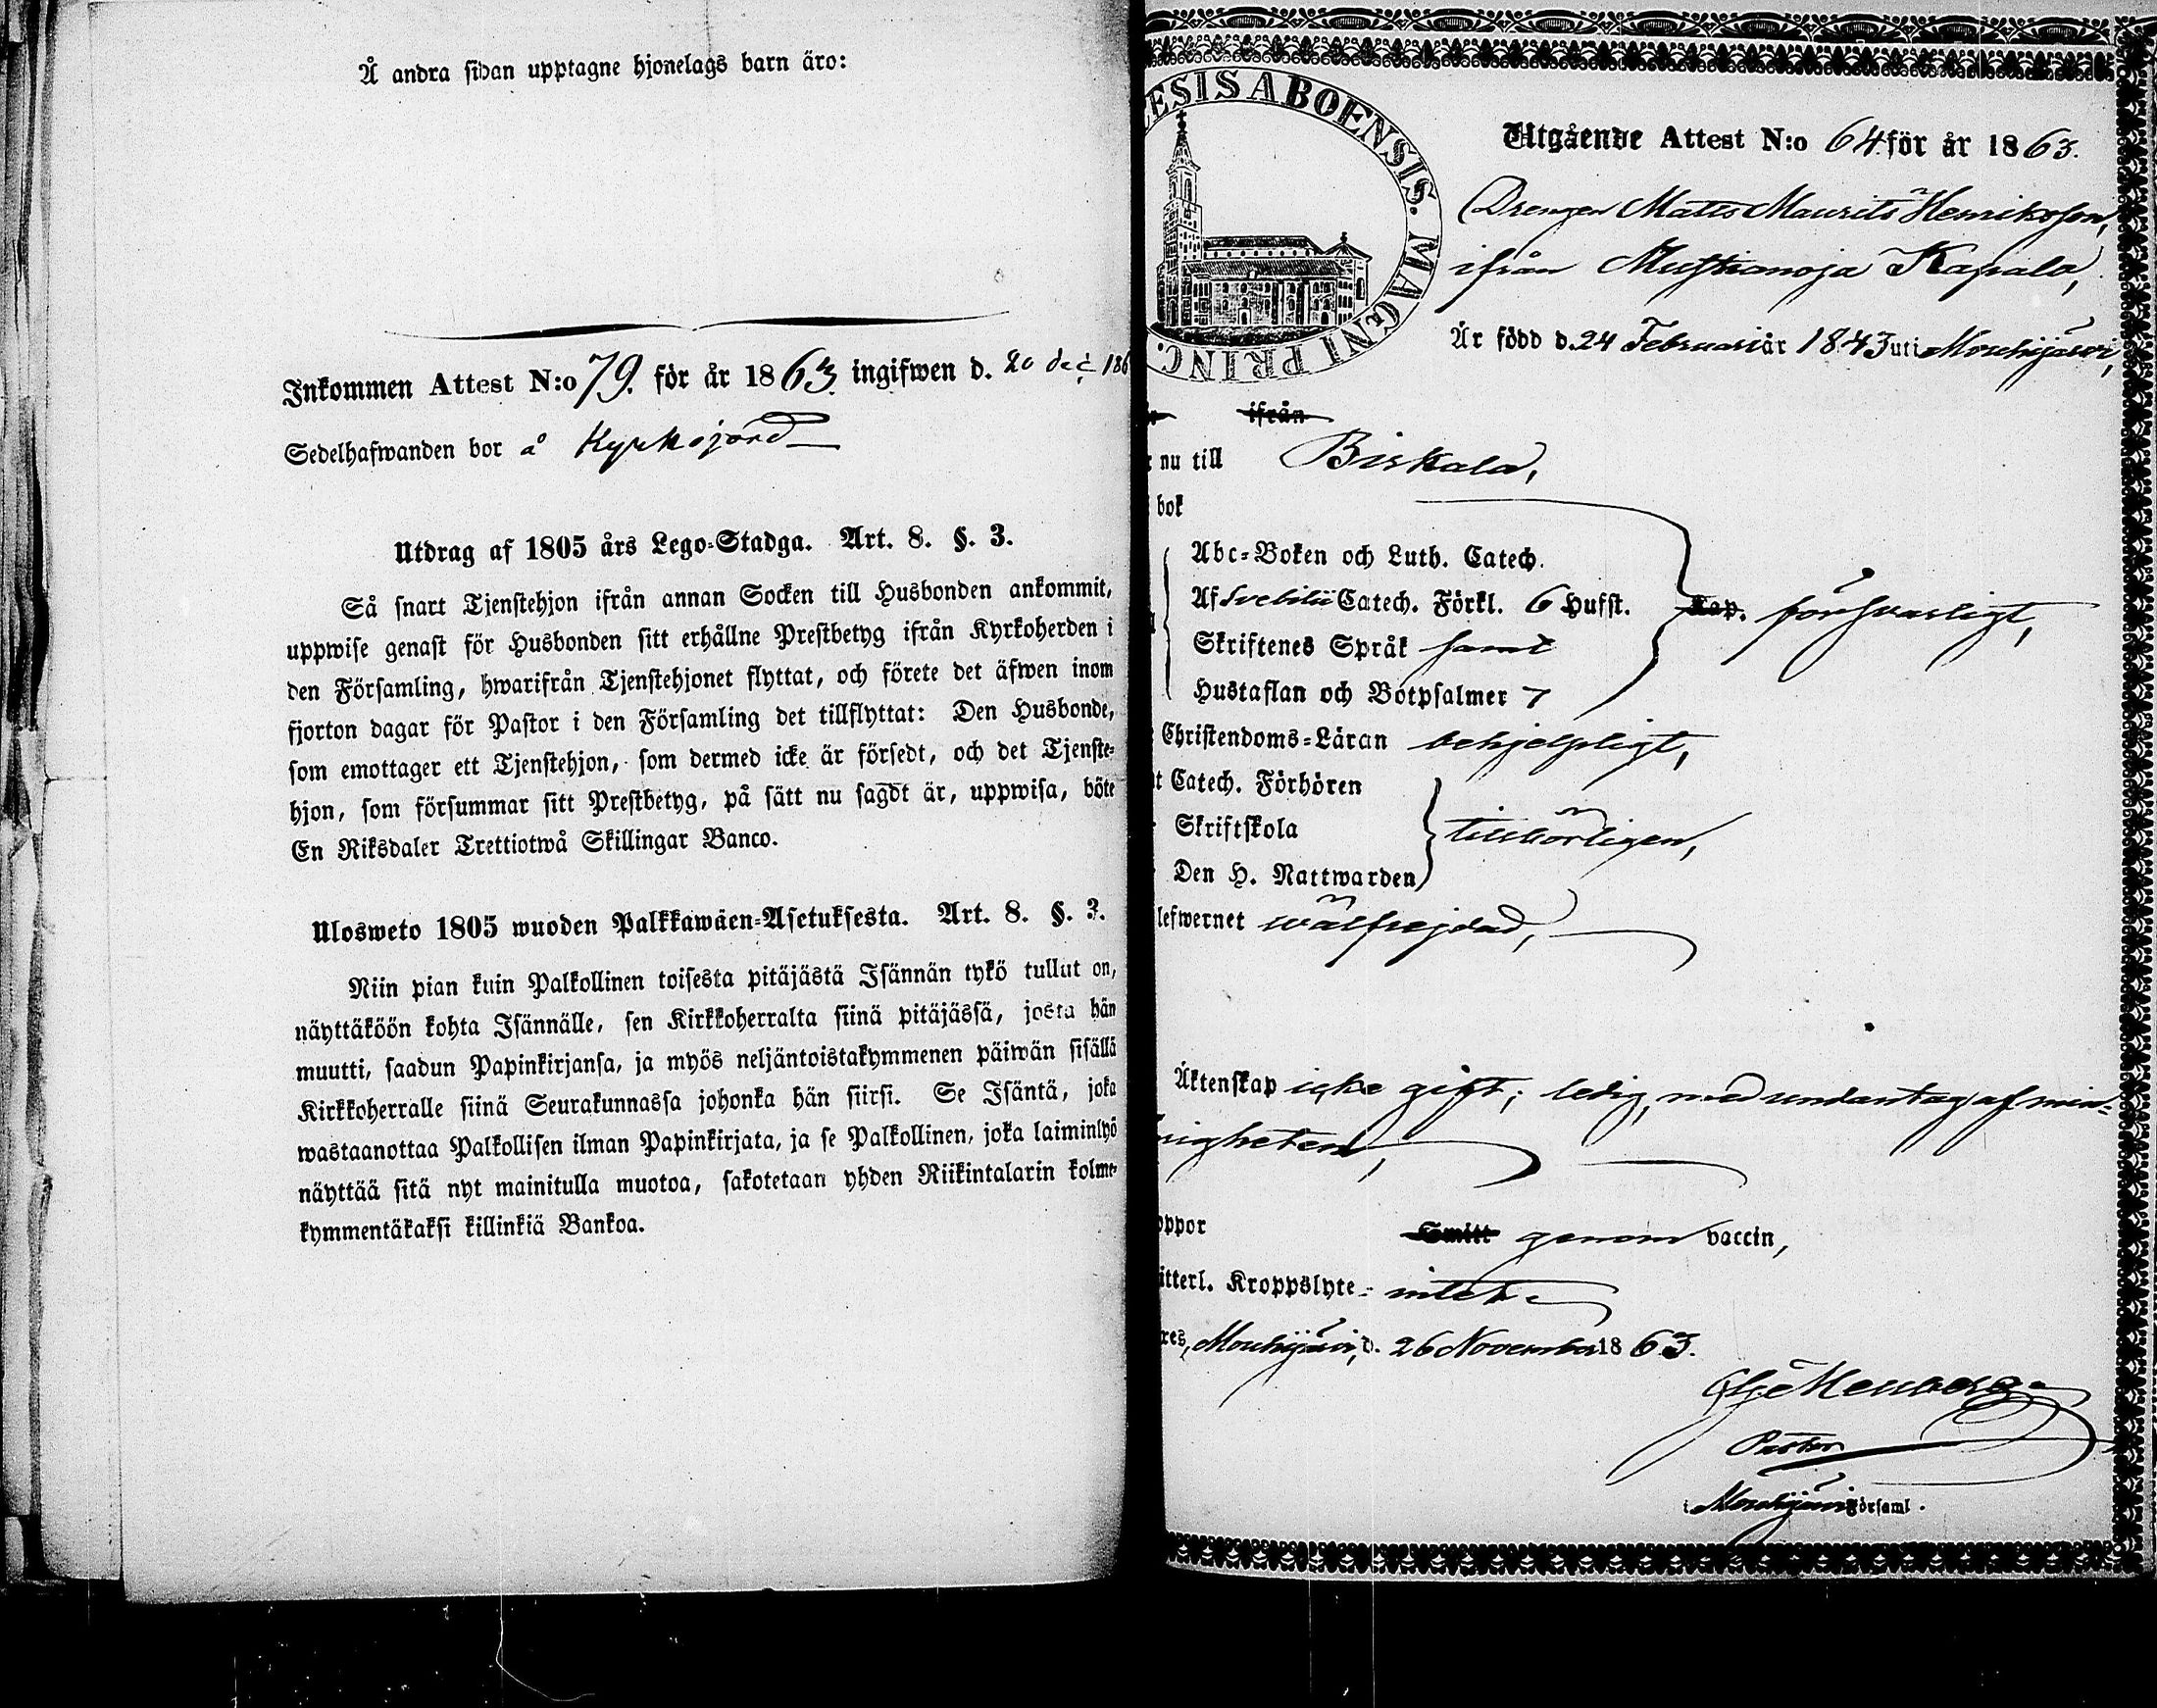 Å andra sidan upptagne hjonelags barn äro:
Inkommen Attest N:o 79. för år 1863. ingifwen d. 20 dec 186
Sedelhafwanden bor å Kyrkojord
Utdrag af 1805 års Lego-Stadga. Art. 8. §. 3.
Så snart Tjenstehjon ifrån annan Socken till Husbonden ankommit,
uppwise genast för Husbonden sitt erhållne Prestbetyg ifrån Kyrkoherden i
den Församling, hwarifrån Tjenstehjonet flyttat, och förete det äfwen inom
fjorton dagar för Pastor i den Församling det tillflyttat: Den Husbonde,
som emottager ett Tjenstehjon, som dermed icke är försedt, och det Tjenste-
hjon, som försummar sitt Prestbetyg, på sätt nu sagdt är, uppwisa, böte
En Riksdaler Trettiotwå Skillingar Banco.
Ulosweto 1805 wuoden Palkkawäen-Asetuksesta. Art. 8. §. 3.
Niin pian kuin Palkollinen toisesta pitäjästä Isännän tykö tullut on,
näyttäköön kohta Isännälle, sen Kirkkoherralta siinä pitäjässä, josta hän
muutti, saadun Papinkirjansa, ja myös neljäntoistakymmenen päiwän sisällä
Kirkkoherralle siinä Seurakunnassa johonka hän siirsi. Se Isäntä, joka
wastaanottaa Palkollisen ilman Papinkirjata, ja se Palkollinen, joka laiminlyö
näyttää sitä nyt mainitulla muotoa, sakotetaan yhden Riikintalarin kolme-
kymmentäkaksi killinkiä Bankoa.
ESIS ABOENSIS. MAGNI PRINC.
Utgående Attest N:o 64 för år 1863.
Drengen Matts Maurits Henriksson,
ifrån Mustianoja Kapala,
Är född d. 24 Februari år 1843 uti Mouhijärvi,
ifrån
nu till Birkala,
bok
Abc-Boken och Luth. Catech.
Af Svebilii Catech. Förkl. 6 Hufst. Kap. försvarligt,
Skriftenes Språk samt
Hustaflan och Botpsalmer 7
Christendoms-Läran behjelpligt,
t Catech. Förhören
Skriftskola tillbörligen,
Den H. Nattwarden
lefwernet wälfrejdad,
Äktenskap icke gift; ledig, med undantag af min-
righeten,
oppor Smitt genom vaccin,
itterl. Kroppslyte- intet
res, Mouhijärvi, d. 26 November 1863.
Pastor
i Mouhijärvi Församl.